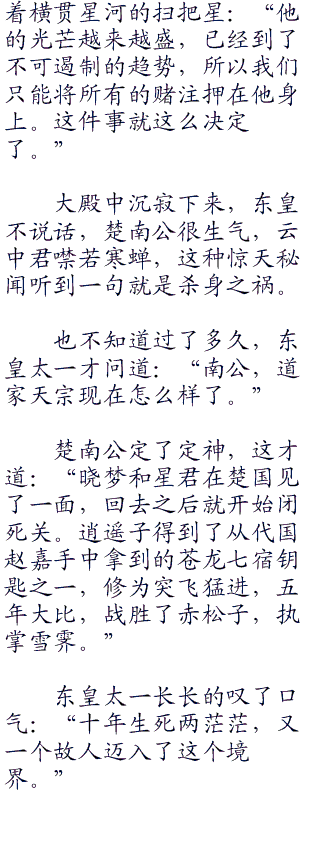 着横贯星河的扫把星：“他
的光芒越来越盛，已经到了
不可遏制的趋势，所以我们
只能将所有的赌注押在他身
上。这件事就这么决定
了。”
大殿中沉寂下来，东皇
不说话，楚南公很生气，云
中君噤若寒蝉，这种惊天秘
闻听到一句就是杀身之祸。
也不知道过了多久，东
皇太一才问道：“南公，道
家天宗现在怎么样了。”
楚南公定了定神，这才
道：“晓梦和星君在楚国见
了一面，回去之后就开始闭
死关。逍遥子得到了从代国
赵嘉手中拿到的苍龙七宿钥
匙之一，修为突飞猛进，五
年大比，战胜了赤松子，执
掌雪霁。”
东皇太一长长的叹了口
气：“十年生死两茫茫，又
一个故人迈入了这个境
界。”